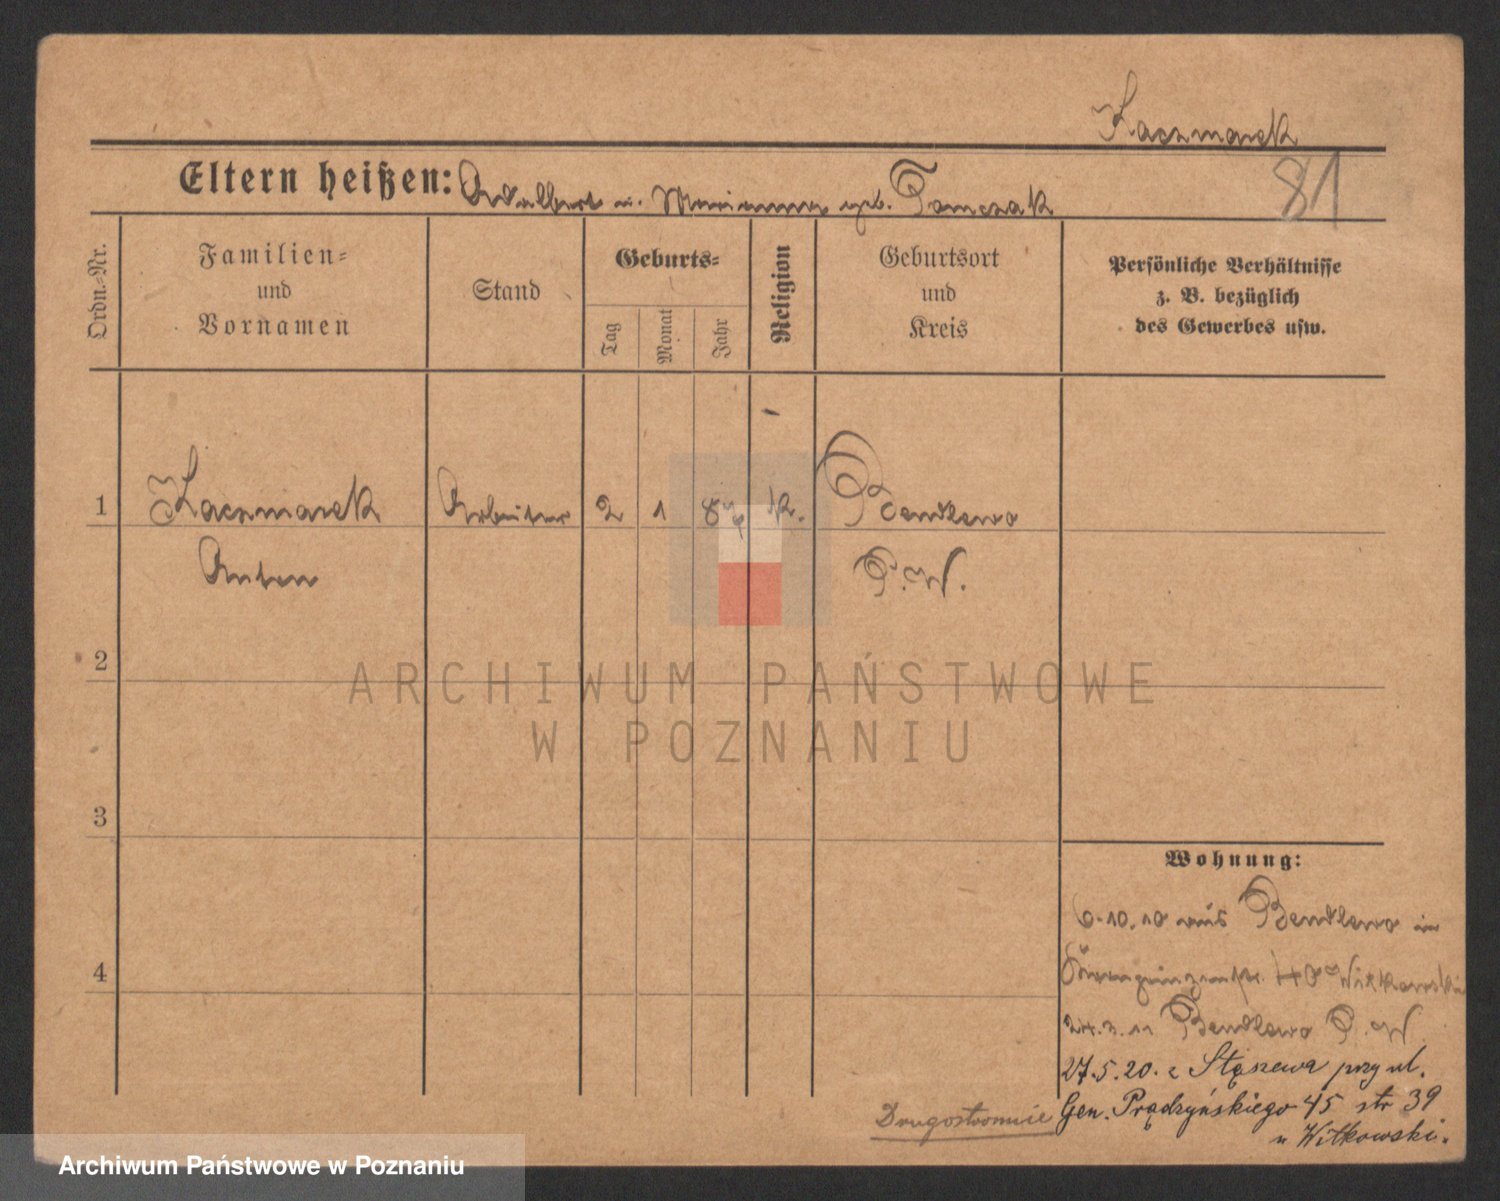 Kaczmarek
81
Eltern heißen: Adalbert u. Marianna geb. Tomczak
Ordn.-Nr.
Familien-
und
Vornamen
Stand
Geburts-
Tag
Monat
Jahr
Religion
Geburtsort
und
Kreis
Persönliche Verhältnisse
z. B. bezüglich
des Gewerbes usw.
1
Kaczmarek
Arbeiter
2
1
K.
Bendlewo
Anton
P. W.
2
ARCHIWUM PAŃSTWOWE
W POZNANIU
3
Wohnung:
6.10.10 aus Bendlewo in
4
Witkowski
24.3.11 Bendlewo P. W.
27.5.20. z Stęszewa przy ul.
Gen. Prądzyńskiego 45 str 39
Drugostronnie
u Witkowski.
Archiwum Państwowe w Poznaniu